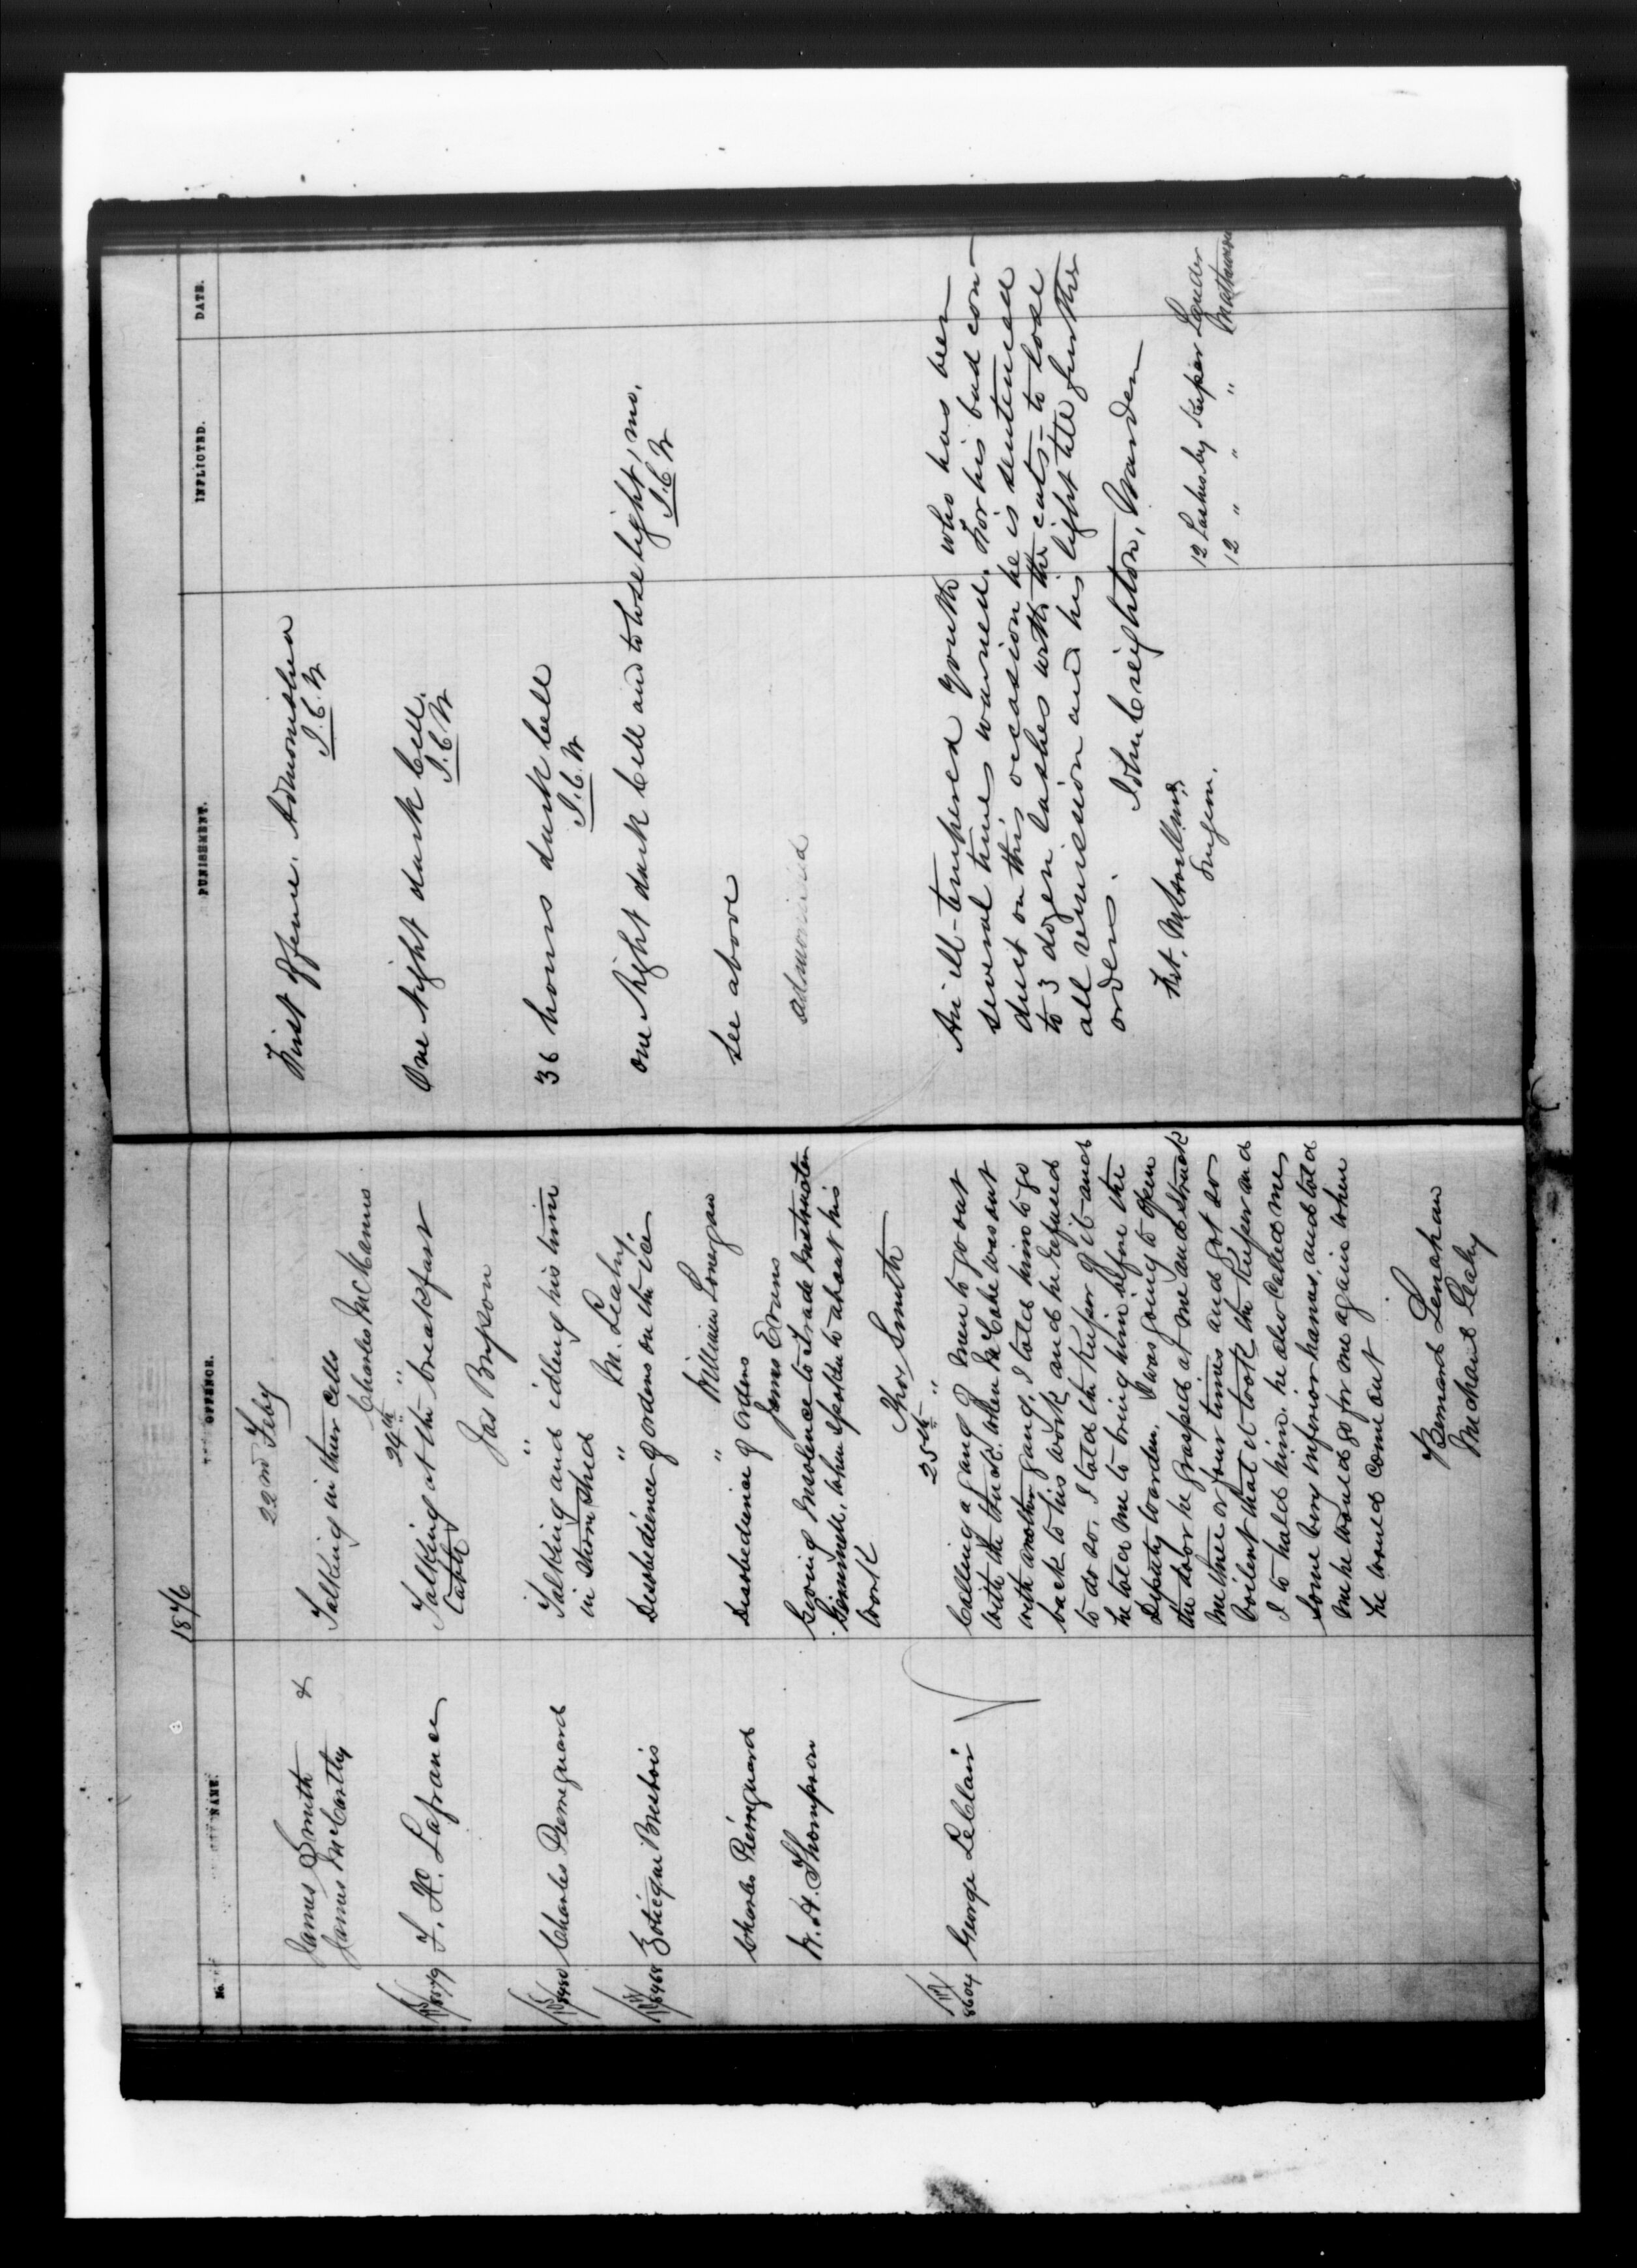 1876
No. NAME. OFFENCE. PUNISHMENT. INFLICTED. DATE.
22nd Feby
James Smith &
James McCarthy
Talking in their cells
Charles McManus
First offence. Admonished
J.C.W
24th "
F. H. Lafrance
Talking at the breakfast
Table
Jas Bryson
One Night dark Cell.
J.C.W
"
Charles Pierreguard
Talking and idling his time
in Stone Shed
M. Leahy.
36 hours dark Cell
J.C.W
"
Zotique Brisbois
Disobedience of orders on the ice
William Lonergan
one Night dark Cell and to lose light, mo.
J.C.W
"
Charles Pierreguard
Disobedience of orders
James Evans
see above
W. H. Thompson
Giving Insolence to Trade Instructor
Gemmell, when spoken to about his
work
Thos Smith
admonished
25th "
8604 George LeClair
Calling a gang of men to go out
with the truck. When McCabe was out
with another gang, I told him to go
back to his work and he refused
to do so. I told the Keeper of it and
he told me to bring him before the
Deputy Warden. I was going to open
the door he grasped at me and struck
me three or four times and got so
voilent that it took the Keeper and
I to hold him. he also called me
some very inferior names, and told
me he would go for me again when
he would come out
Bernard Lenahan
Michael Leahy
An ill-tempered youth who has been
several times warned. For his bad con-
duct on this occasion he is sentenced
to 3 dozen lashes with the cats - to lose
all remission and his light till further
orders.
John Creighton, Warden
Surgeon.
12 Lashes by Keeper
12 " " "